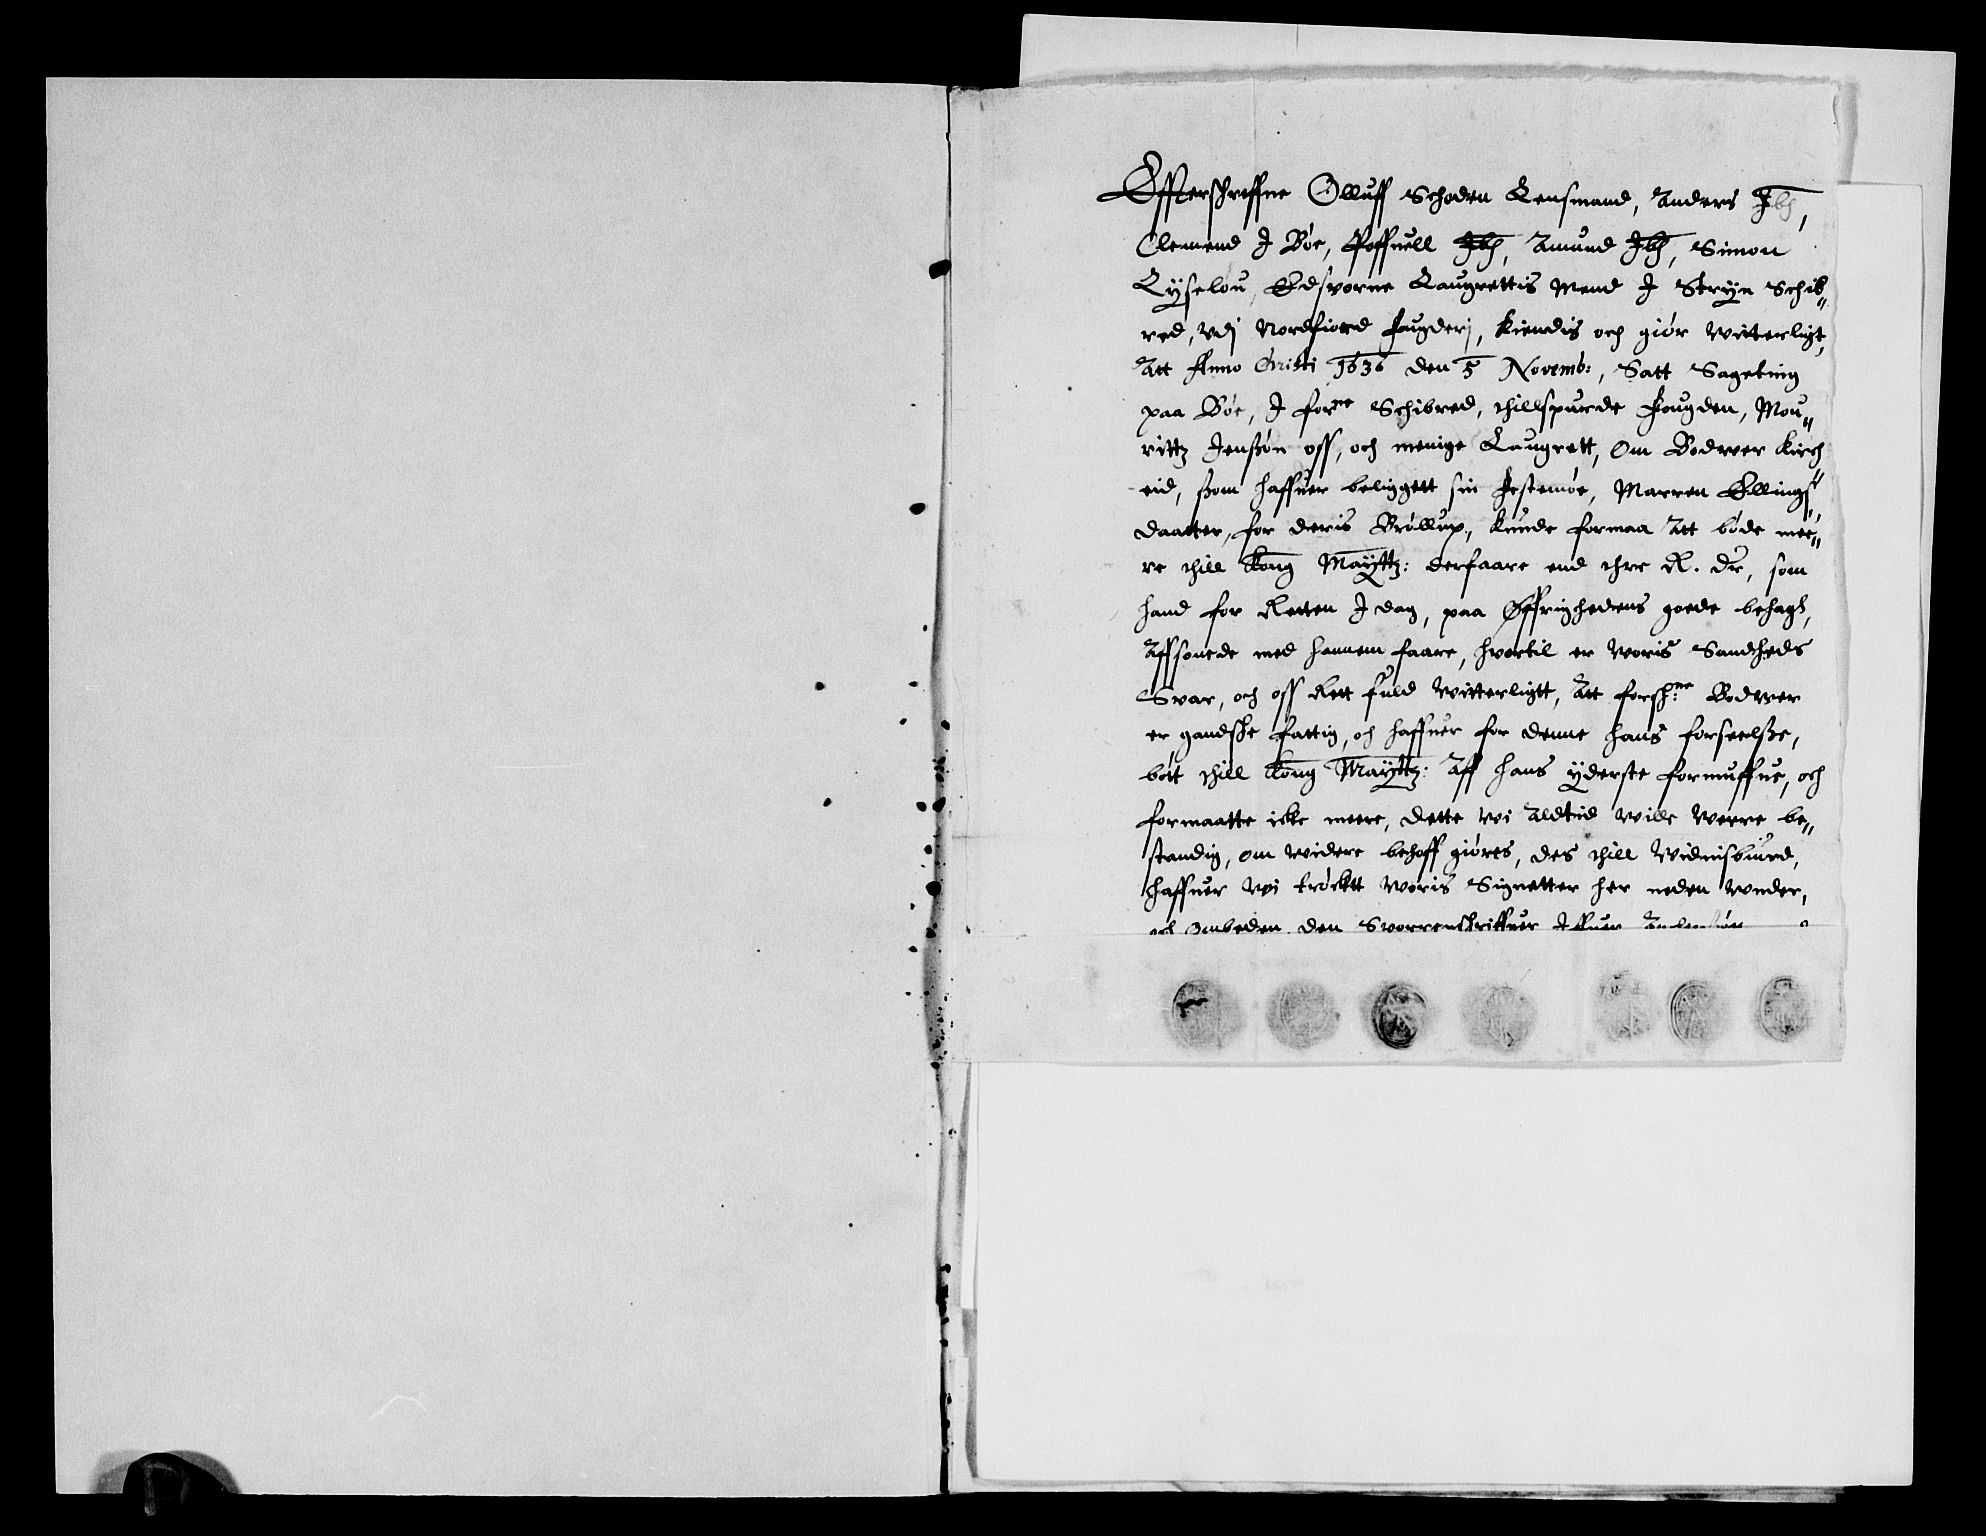 Effterschreffne Olluff Schoden Lensmand, Anders Ibh,
Clemend I Böe, Poffuell Ibh, Amund Ibh, Simon
Lÿselou, Edsvorne Laugrettis Mend I Strÿn Schib„
red, vdj Nordfiord fougderj, kiendis och giör witterligt,
Att Anno Christi 1636 den 5 Novemb:, Satt Sageting
paa Böe, I forne Schibred, thillspurde fougden, Mou„
rittz Jenßön oss, och menige Laugrett, Om Bodwer Kirch
eid, ßom haffuer beliggett sin festemöe, Marren Ellings„
daatter, for deris Bröllup, kunde formaa Att böde mee„
re thill Kong Maÿttz: derfaare end thre R. dr, som
hand for Retten I dag, paa Öffrighedens goede behagh,
Affsonede med hannem faare, hvortil er woris Sandheds
Svar, och oss Rett fuld witterligtt, Att forsch:ne Bodwer
er gandsche fattig, och haffuer for denne hans forseelße,
bött thill Kong Maÿttz: Aff hans ÿderste formuffue, och
formaatte icke meere, dette wi Aldtid wille werre be„
standig, om widere behoff giöres, des thill widnisbiurd,
haffuer wi tröcktt woris Signetter her neden wnder,
och ombeden den Svorrenschriffuer Iffuer